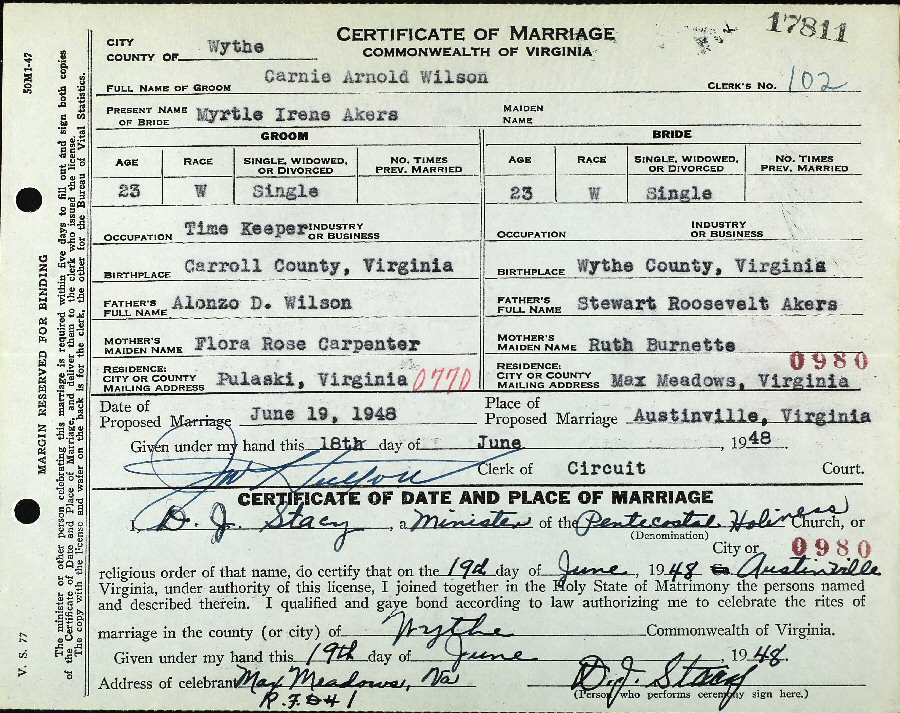 CERTIFICATE OF MARRIAGE
COMMONWEALTH OF VIRGINIA
17811
CITY
COUNTY OF Wythe
FULL NAME OF GROOM Carnie Arnold Wilson CLERK'S NO. 102
PRESENT NAME OF BRIDE Myrtle Irene Akers MAIDEN NAME
GROOM BRIDE
AGE RACE SINGLE, WIDOWED, OR DIVORCED NO. TIMES PREV. MARRIED AGE RACE SINGLE, WIDOWED, OR DIVORCED NO. TIMES PREV. MARRIED
23 W Single 23 W Single
OCCUPATION Time Keeper INDUSTRY OR BUSINESS OCCUPATION INDUSTRY OR BUSINESS
BIRTHPLACE Carroll County, Virginia BIRTHPLACE Wythe County, Virginia
FATHER'S FULL NAME Alonzo D. Wilson FATHER'S FULL NAME Stewart Roosevelt Akers
MOTHER'S MAIDEN NAME Flora Rose Carpenter MOTHER'S MAIDEN NAME Ruth Burnette
0980
RESIDENCE: CITY OR COUNTY MAILING ADDRESS Pulaski, Virginia 0770 RESIDENCE: CITY OR COUNTY MAILING ADDRESS Max Meadows, Virginia
Date of Proposed Marriage June 19, 1948 Place of Proposed Marriage Austinville, Virginia
Given under my hand this 18th day of June, 1948
Clerk of Circuit Court.
CERTIFICATE OF DATE AND PLACE OF MARRIAGE
I, D. J. Stacy, a Minister of the Pentecostal Holiness Church, or
(Denomination)
City or 0980
religious order of that name, do certify that on the 19th day of June, 1948 Austinville
Virginia, under authority of this license, I joined together in the Holy State of Matrimony the persons named
and described therein. I qualified and gave bond according to law authorizing me to celebrate the rites of
marriage in the county (or city) of Wythe Commonwealth of Virginia.
Given under my hand this 19th day of June 1948.
Address of celebrant Max Meadows, Va D. J. Stacy
R.F.D #1 (Person who performs ceremony sign here.)
50M1-47
MARGIN RESERVED FOR BINDING
V. S. 77
The minister or other person celebrating this marriage is required within five days to fill out and sign both copies
of the Certificate of Date and Place of Marriage, and deliver them to the clerk who issued the license.
The copy with the license and wafer on the back is for the clerk, the other for the Bureau of Vital Statistics.